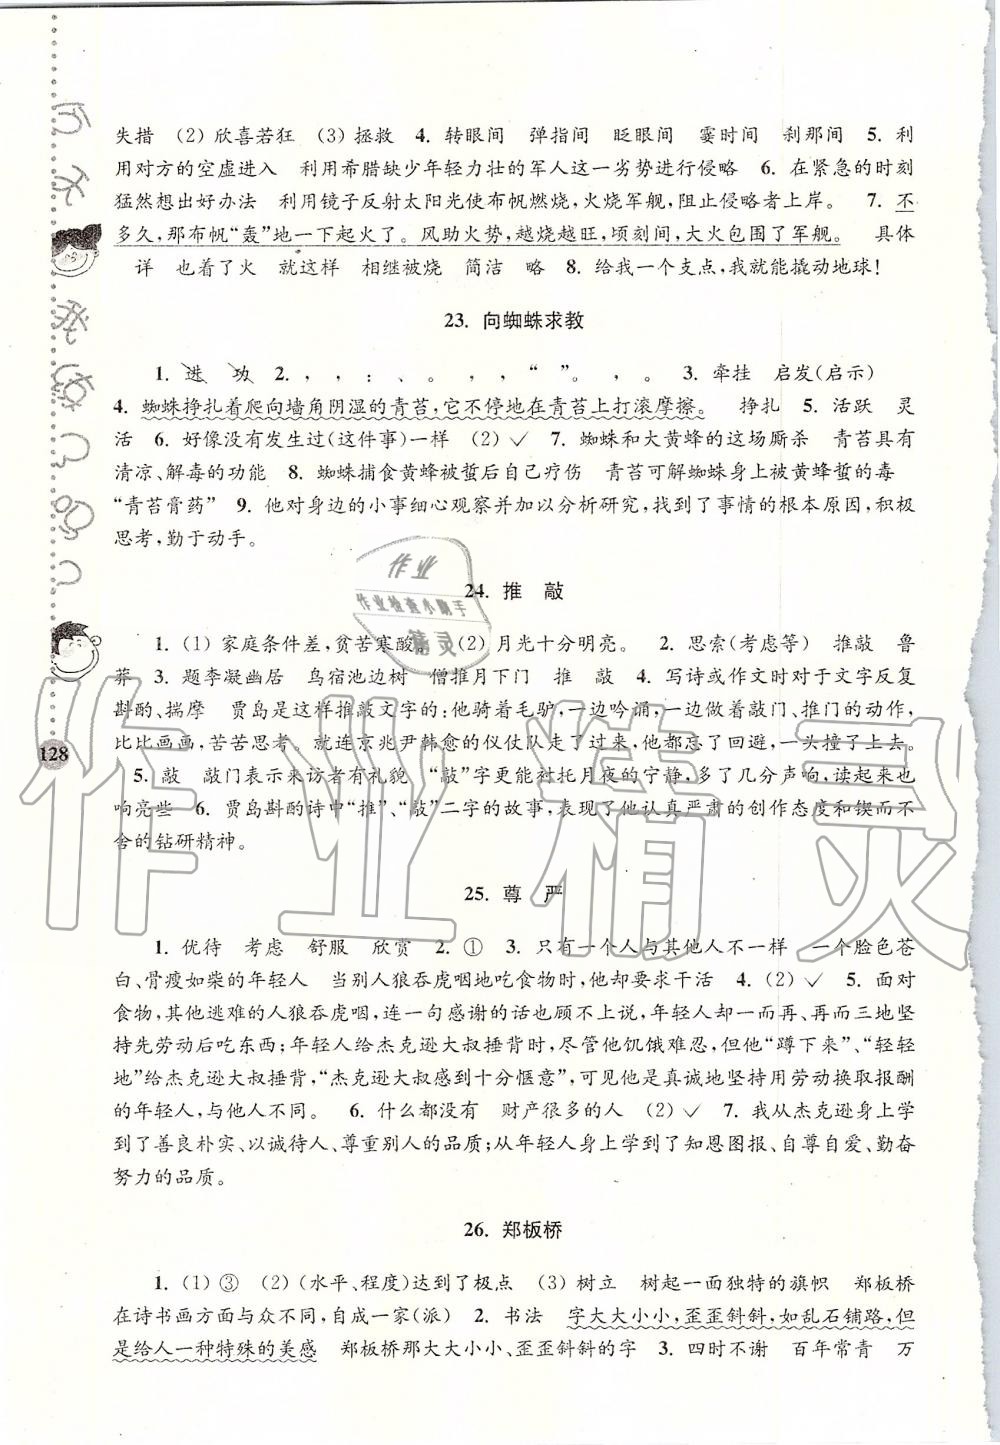 失措　(2) 欣喜若狂　(3) 拯救　4. 转眼间　弹指间　眨眼间　霎时间　刹那间　5. 利
用对方的空虚进入　利用希腊缺少年轻力壮的军人这一劣势进行侵略　6. 在紧急的时刻
猛然想出好办法　利用镜子反射太阳光使布帆燃烧，火烧军舰，阻止侵略者上岸。　7. 不
多久，那布帆“轰”地一下起火了。风助火势，越烧越旺，顷刻间，大火包围了军舰。　具体
详　也着了火　就这样　相继被烧　简洁　略　8. 给我一个支点，我就能撬动地球！
23. 向蜘蛛求教
1. 进　功　2. ，，：、。，，“”。，。　3. 牵挂　启发(启示)
4. 蜘蛛挣扎着爬向墙角阴湿的青苔，它不停地在青苔上打滚摩擦。　挣扎　5. 活跃　灵
活　6. 好像没有发生过(这件事)一样　(2) ✓　7. 蜘蛛和大黄蜂的这场厮杀　青苔具有
清凉、解毒的功能　8. 蜘蛛捕食黄蜂被蜇后自己疗伤　青苔可解蜘蛛身上被黄蜂蜇的毒
“青苔膏药”　9. 他对身边的小事细心观察并加以分析研究，找到了事情的根本原因，积极
思考，勤于动手。
作业
作业检查小助手
精灵
24. 推　敲
1. (1) 家庭条件差，贫苦寒酸。　(2) 月光十分明亮。　2. 思索(考虑等)　推敲　鲁
莽　3. 题李凝幽居　鸟宿池边树　僧推月下门　推　敲　4. 写诗或作文时对于文字反复
斟酌、揣摩　贾岛是这样推敲文字的：他骑着毛驴，一边吟诵，一边做着敲门、推门的动作，
比比画画，苦苦思考。就连京兆尹韩愈的仪仗队走了过来，他都忘了回避，一头撞了上去。
5. 敲　敲门表示来访者有礼貌　“敲”字更能衬托月夜的宁静，多了几分声响，读起来也
响亮些　6. 贾岛斟酌诗中“推”、“敲”二字的故事，表现了他认真严肃的创作态度和锲而不
舍的钻研精神。
128
25. 尊　严
1. 优待　考虑　舒服　欣赏　2. ①　3. 只有一个人与其他人不一样　一个脸色苍
白、骨瘦如柴的年轻人　当别人狼吞虎咽地吃食物时，他却要求干活　4. (2) ✓　5. 面对
食物，其他逃难的人狼吞虎咽，连一句感谢的话也顾不上说，年轻人却一而再、再而三地坚
持先劳动后吃东西；年轻人给杰克逊大叔捶背时，尽管他饥饿难忍，但他“蹲下来”、“轻轻
地”给杰克逊大叔捶背，“杰克逊大叔感到十分惬意”，可见他是真诚地坚持用劳动换取报酬
的年轻人，与他人不同。　6. 什么都没有　财产很多的人　(2) ✓　7. 我从杰克逊身上学
到了善良朴实、以诚待人、尊重别人的品质；从年轻人身上学到了知恩图报、自尊自爱、勤奋
努力的品质。
26. 郑板桥
1. (1) ③　(2) (水平、程度)达到了极点　(3) 树立　树起一面独特的旗帜　郑板桥
在诗书画方面与众不同，自成一家(派)　2. 书法　字大大小小，歪歪斜斜，如乱石铺路，但
是给人一种特殊的美感　郑板桥那大大小小、歪歪斜斜的字　3. 四时不谢　百年常青　万
作业精灵